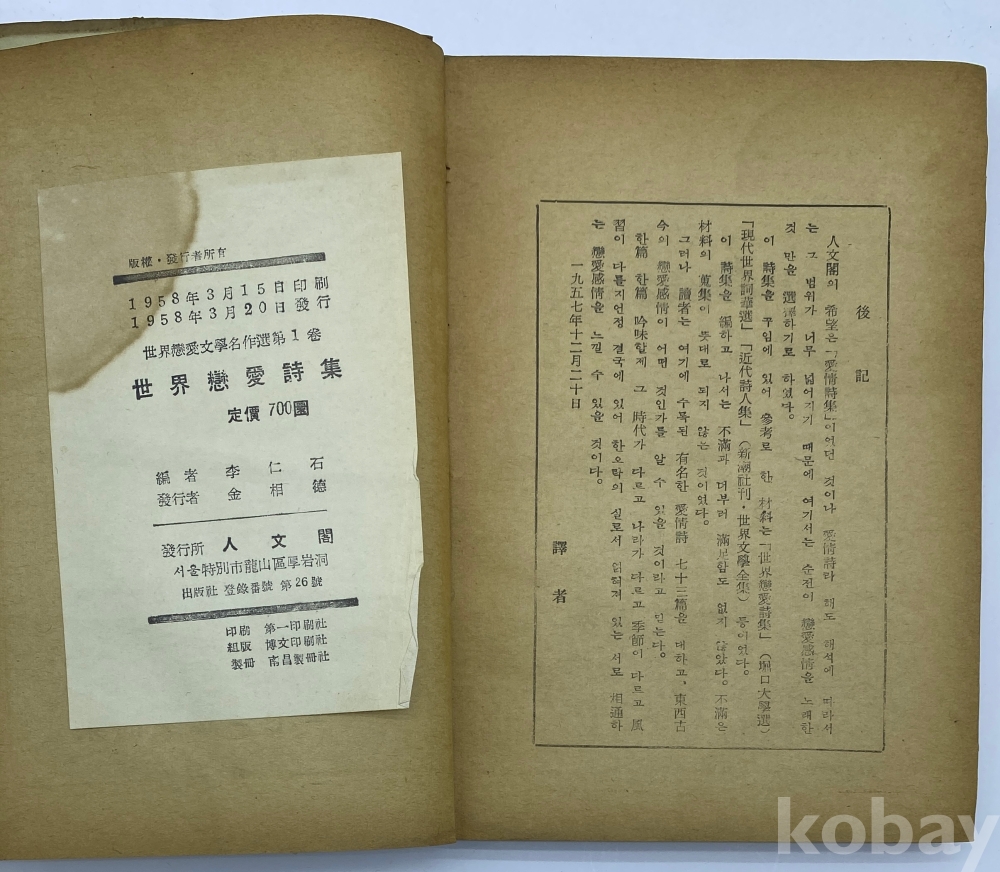 版權・發行者所有
1958年3月15日印刷
1958年3月20日發行
世界戀愛文學名作選第1卷
世界戀愛詩集
定價 700圜
編者 李仁石
發行者 金相德
發行所 人文閣
서울特別市龍山區厚岩洞
出版社 登錄番號 第26號
印刷 第一印刷社
組版 博文印刷社
製冊 南昌製冊社
後記
人文閣의 希望은「愛情詩集」이었던 것이나 愛情詩라 해도 해석에 따라서
는 그 범위가 너무 넓어지기 때문에 여기서는 순전이 戀愛感情을 노래한
것 만을 選譯하기로 하였다.
이 詩集을 꾸임에 있어 參考로 한 材料는「世界戀愛詩集」(堀口大學選)
「現代世界詞華選」「近代詩人集」(新潮社刊・世界文學全集) 등이었다.
이 詩集을 編하고 나서는 不滿과 더부러 滿足함도 없지 않았다. 不滿은
材料의 蒐集이 뜻대로 되지 않는 것이었다.
그러나 讀者는 여기에 수록된 有名한 愛情詩 七十三篇을 대하고, 東西古
今의 戀愛感情이 어떤 것인가를 알 수 있을 것이라고 믿는다.
한篇 한篇 吟味할제 그 時代가 다르고 나라가 다르고 季節이 다르고 風
習이 다를지언정 결국에 있어 한오락의 실로서 얽혀져 있는 서로 相通하
는 戀愛感情을 느낄 수 있을 것이다.
一九五七年十二月二十日
譯者
kobay